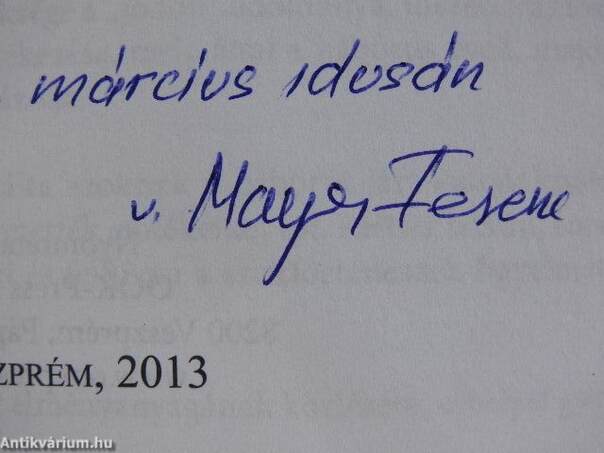 március idusán
v. Mayer Ferenc
ZPRÉM, 2013
Antikvárium.hu